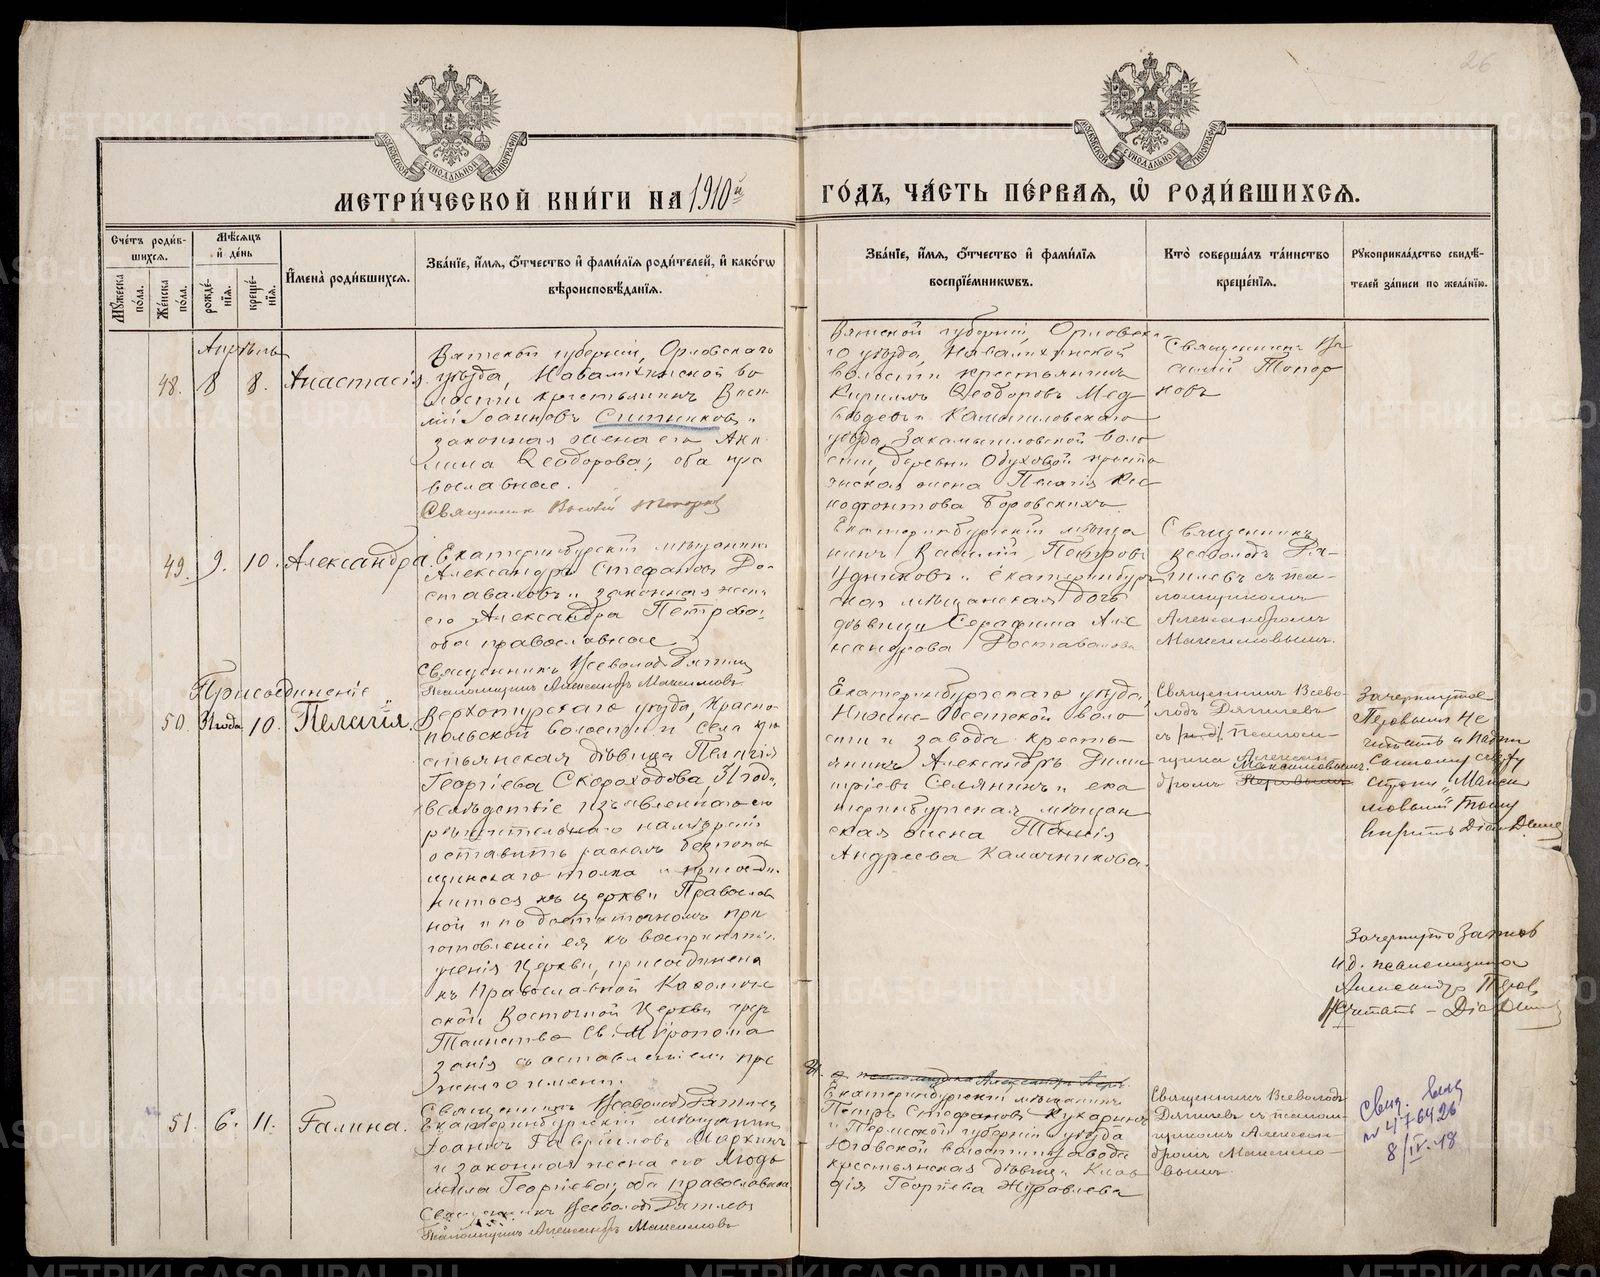 26
МОСКОВСКОЙ СѴНОДАЛЬНОЙ ТИПОГРАФІИ
МОСКОВСКОЙ СѴНОДАЛЬНОЙ ТИПОГРАФІИ
МЕТРИ́ЧЕСКОЙ КНИ́ГИ НА 1910й
ГО́ДЪ, ЧА́СТЬ ПЕ́РВАЯ, Ѡ҆ РОДИ́ВШИХСЯ.
Сче́тъ роди́вшихся.
Мꙋ́жеска по́ла.
Же́нска по́ла.
Мѣ́сяцъ и҆ де́нь
рожде́нїя.
креще́нїя.
И҆мена̀ роди́вшихся.
Зва́нїе, и҆́мя, ѻ҆́тчество и҆ фами́лїя роди́телей, и҆ како́гѡ
вѣроисповѣ́данїя.
Зва́нїе, и҆́мя, ѻ҆́тчество и҆ фами́лїя
воспрїе́мникѡвъ.
Кто̀ соверша́лъ та́инство
креще́нїя.
Рꙋкоприкла́дство свидѣ́-
телей за́писи по жела́нїю.
Апрѣль
48. 8 8. Анастасія
Вятской губерніи, Орловскаго
уѣзда, Навалихинской во
лости крестьянинъ Васи
лій Іоанновъ Ситниковъ и
законная жена его Аки
лина Ѳеодорова; оба пра
вославные.
Священникъ Василій Топорковъ
Вятской губерніи, Орловска
го уѣзда, Навалихинской
волости крестьянинъ
Кириллъ Ѳеодоровъ Мед
вѣдевъ и Камышловскаго
уѣзда, Закамышловской воло
сти, деревни Обуховой кресть
янская жена Пелагія Кс
нофонтова Боровскихъ
Священникъ Ва
силій Топор
ковъ
49. 9. 10. Александра.
Екатеринбургскій мѣщанинъ
Александръ Стефановъ До
ставаловъ и законная жена
его Александра Петрова;
оба православные
Священникъ Всеволодъ Дягилев
Псаломщикъ Александръ Максимовъ
Екатеринбургскій мѣща
нинъ Василій Петровъ
и Екатеринбург
ская мѣщанская дочь
дѣвица Серафима Алек
сандрова
Священникъ
Всеволодъ Дя-
гилевъ съ пса-
ломщикомъ
Александромъ
Максимовымъ.
Присоединеніе
50. 31 года 10. Пелагія.
Верхотурскаго уѣзда, Красно
польской волости и села кре
стьянская дѣвица Пелагія
Георгіева Скороходова, 31 года
вслѣдствіе изъявленнаго ею
рѣшительнаго намѣренія
оставить расколъ безпопов
щинскаго толка и присоеди
ниться къ церкви Православ
ной и по достаточномъ при
готовленіи ея къ воспринятію
ученія Церкви, присоединена
къ Православной Каѳоличе
ской Восточной Церкви чрезъ
Таинство Св. Мѵропома
занія съ оставленіемъ пре
жняго имени.
Священникъ Всеволодъ Дягилев
Екатеринбургскаго уѣзда,
Нижне-Исетской воло
сти и завода кресть-
янинъ Александръ Дими
тріевъ Селянинъ и ека
теринбургская мѣщан
ская жена Таисія
Андреева Калачникова.
Священникъ Всево-
лодъ Дягилевъ
съ и.д. псалом-
щика Алексан
дромъ Максимовымъ.
Перовымъ
Зачеркнутое
Перовымъ не
читать а надпи
санному сверху
строки "Макси
мовымъ" тому
вѣрить
Зачеркнуто
и.д. псаломщика
Александръ Перов
Не читать -
и псаломщика Александръ Перов
51. 6. 11. Галина.
Екатеринбургскій мѣщанинъ
Іоаннъ Гавріиловъ Мархинъ
и законная жена его Людь
мила Георгіева; оба православные
Священникъ Всеволодъ Дягилев
Псаломщикъ Александръ Максимовъ
Екатеринбургскій мѣщанинъ
Петръ Стефановъ Кукаринъ
и Пермской губерніи и уѣзда
Юговской волости и завода
крестьянская дѣвица Клав
дія Георгіева Журавлева
Священникъ Всеволодъ
Дягилевъ съ псалом-
щикомъ Алексан-
дромъ Максимо-
вымъ.
8/IV-18